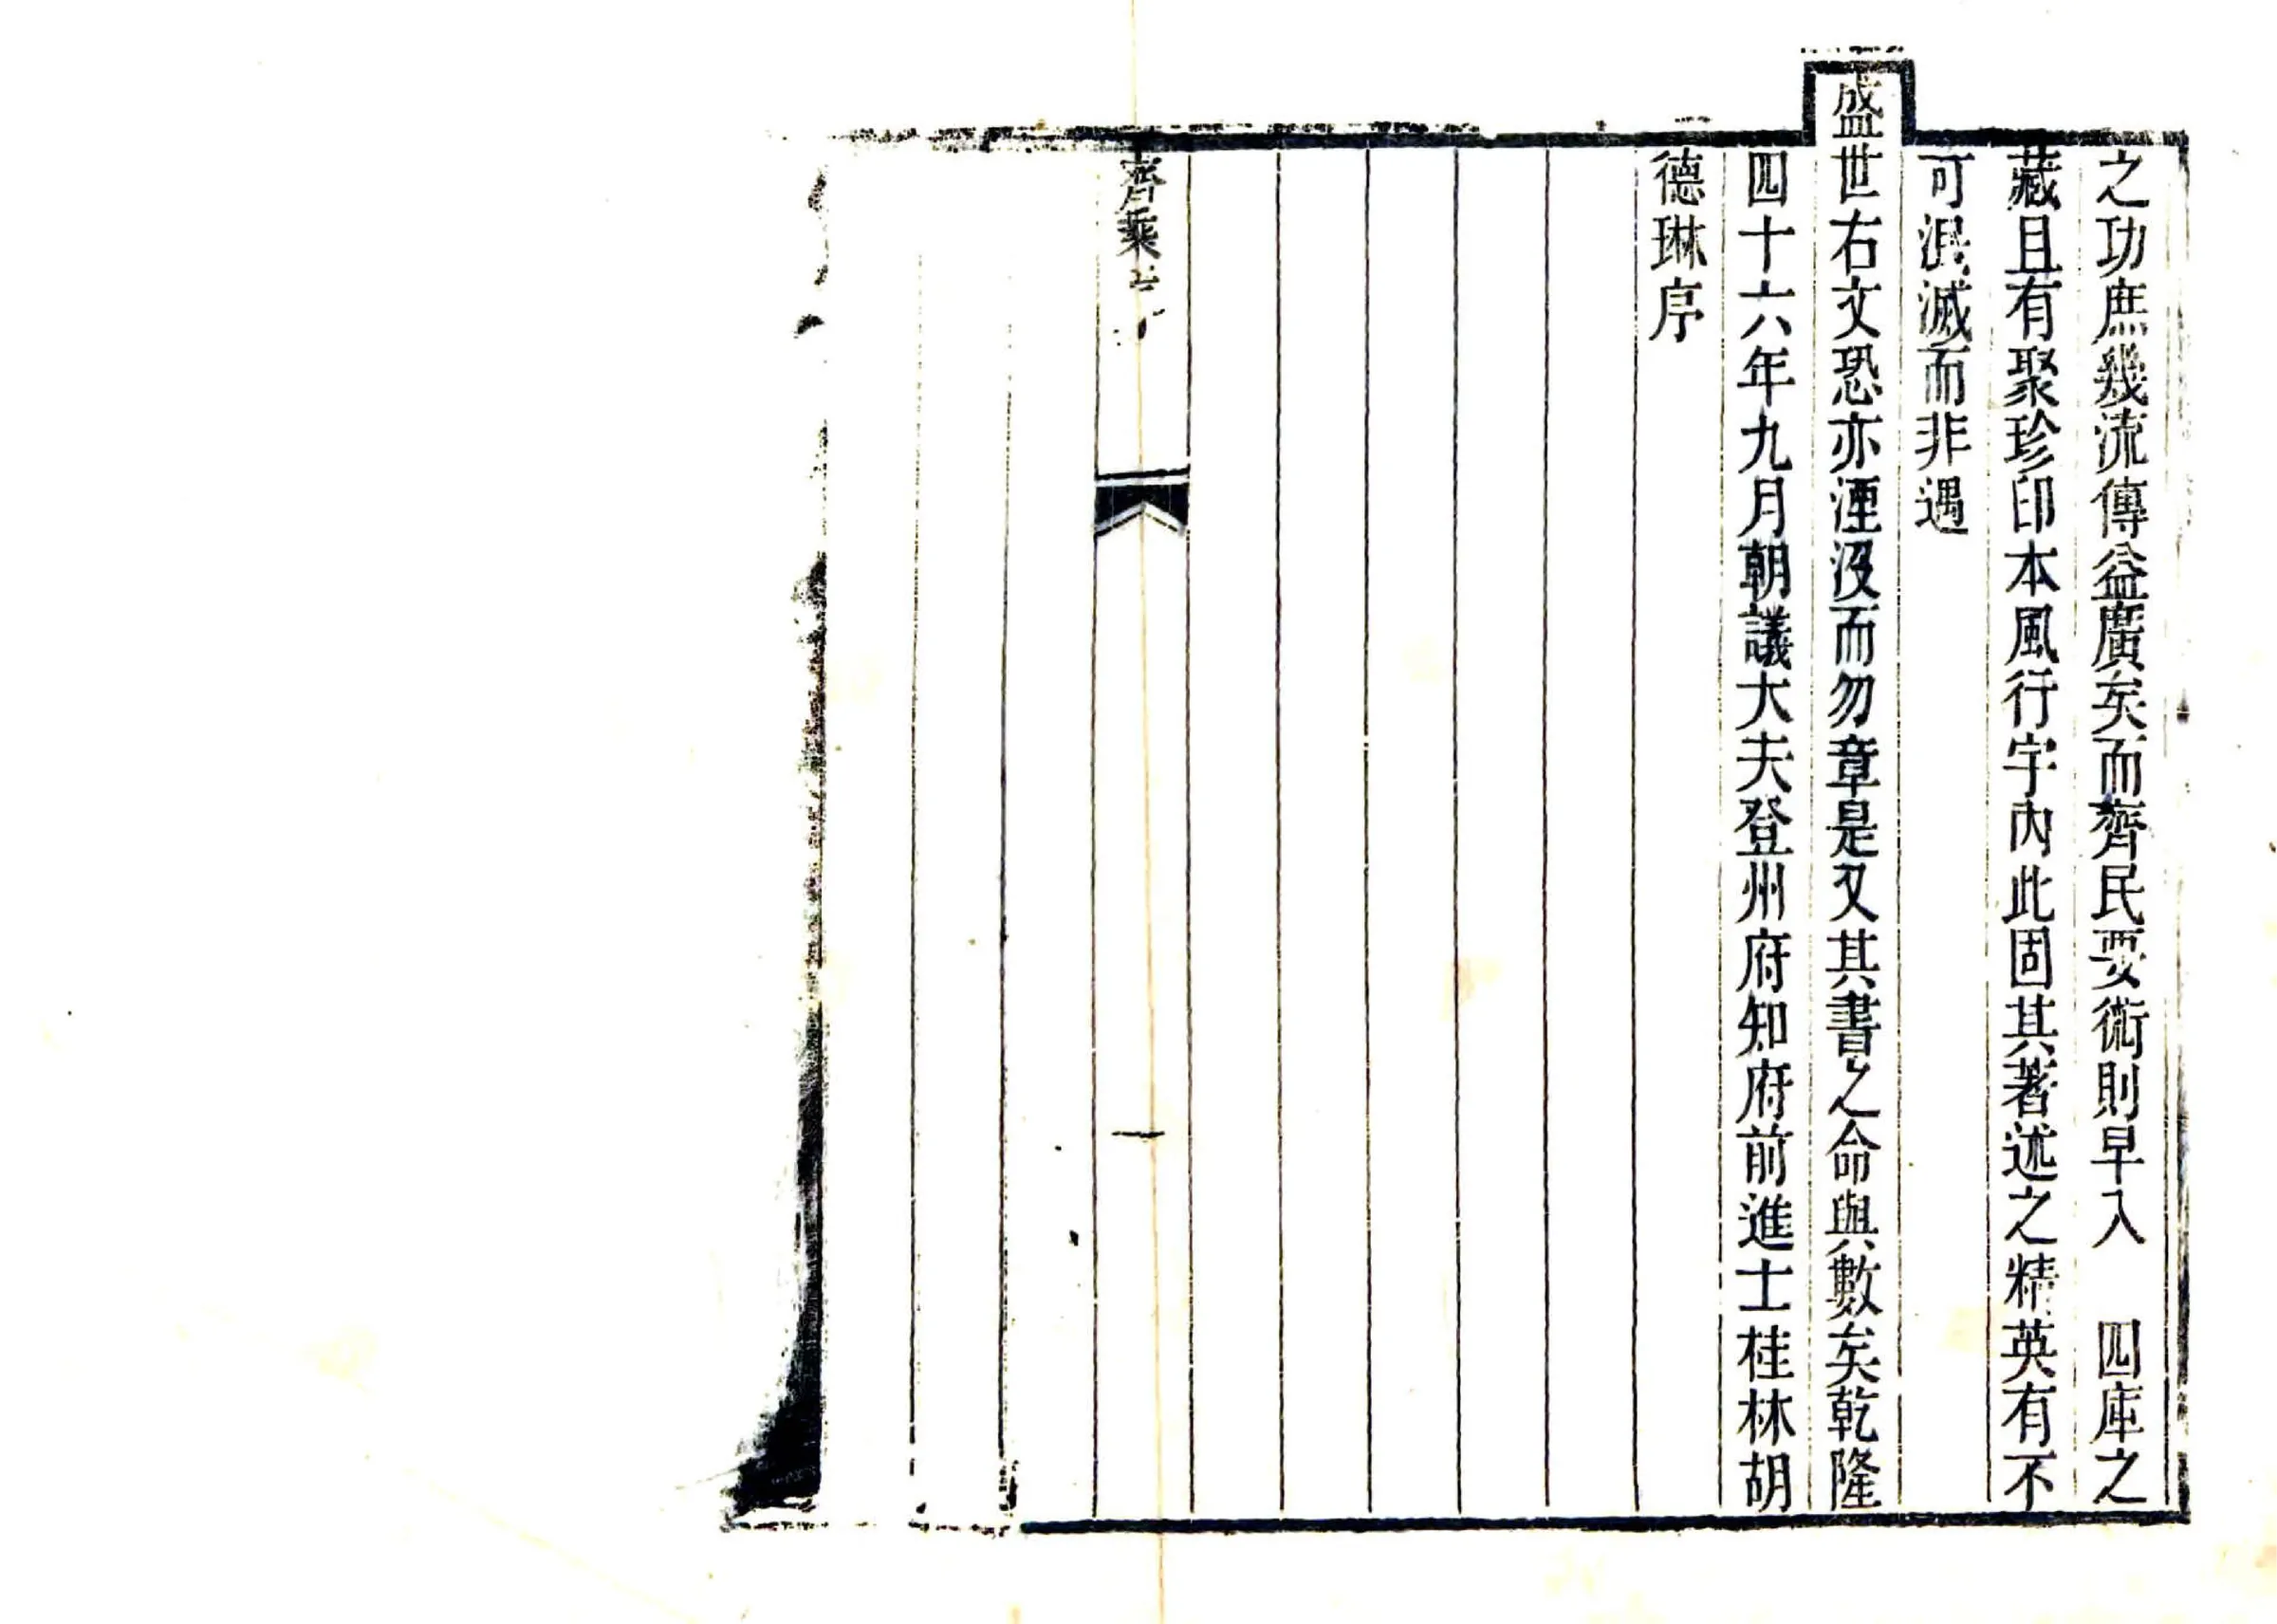 之功庶幾流傳益廣矣而齊民要術則早入　四庫之
藏且有聚珍印本風行宇內此固其著述之精英有不
可泯滅而非遇
盛世右文恐亦湮沒而勿章是又其書之命與數矣乾隆
四十六年九月朝議大夫登州府知府前進士桂林胡
德琳序
齊乘
一